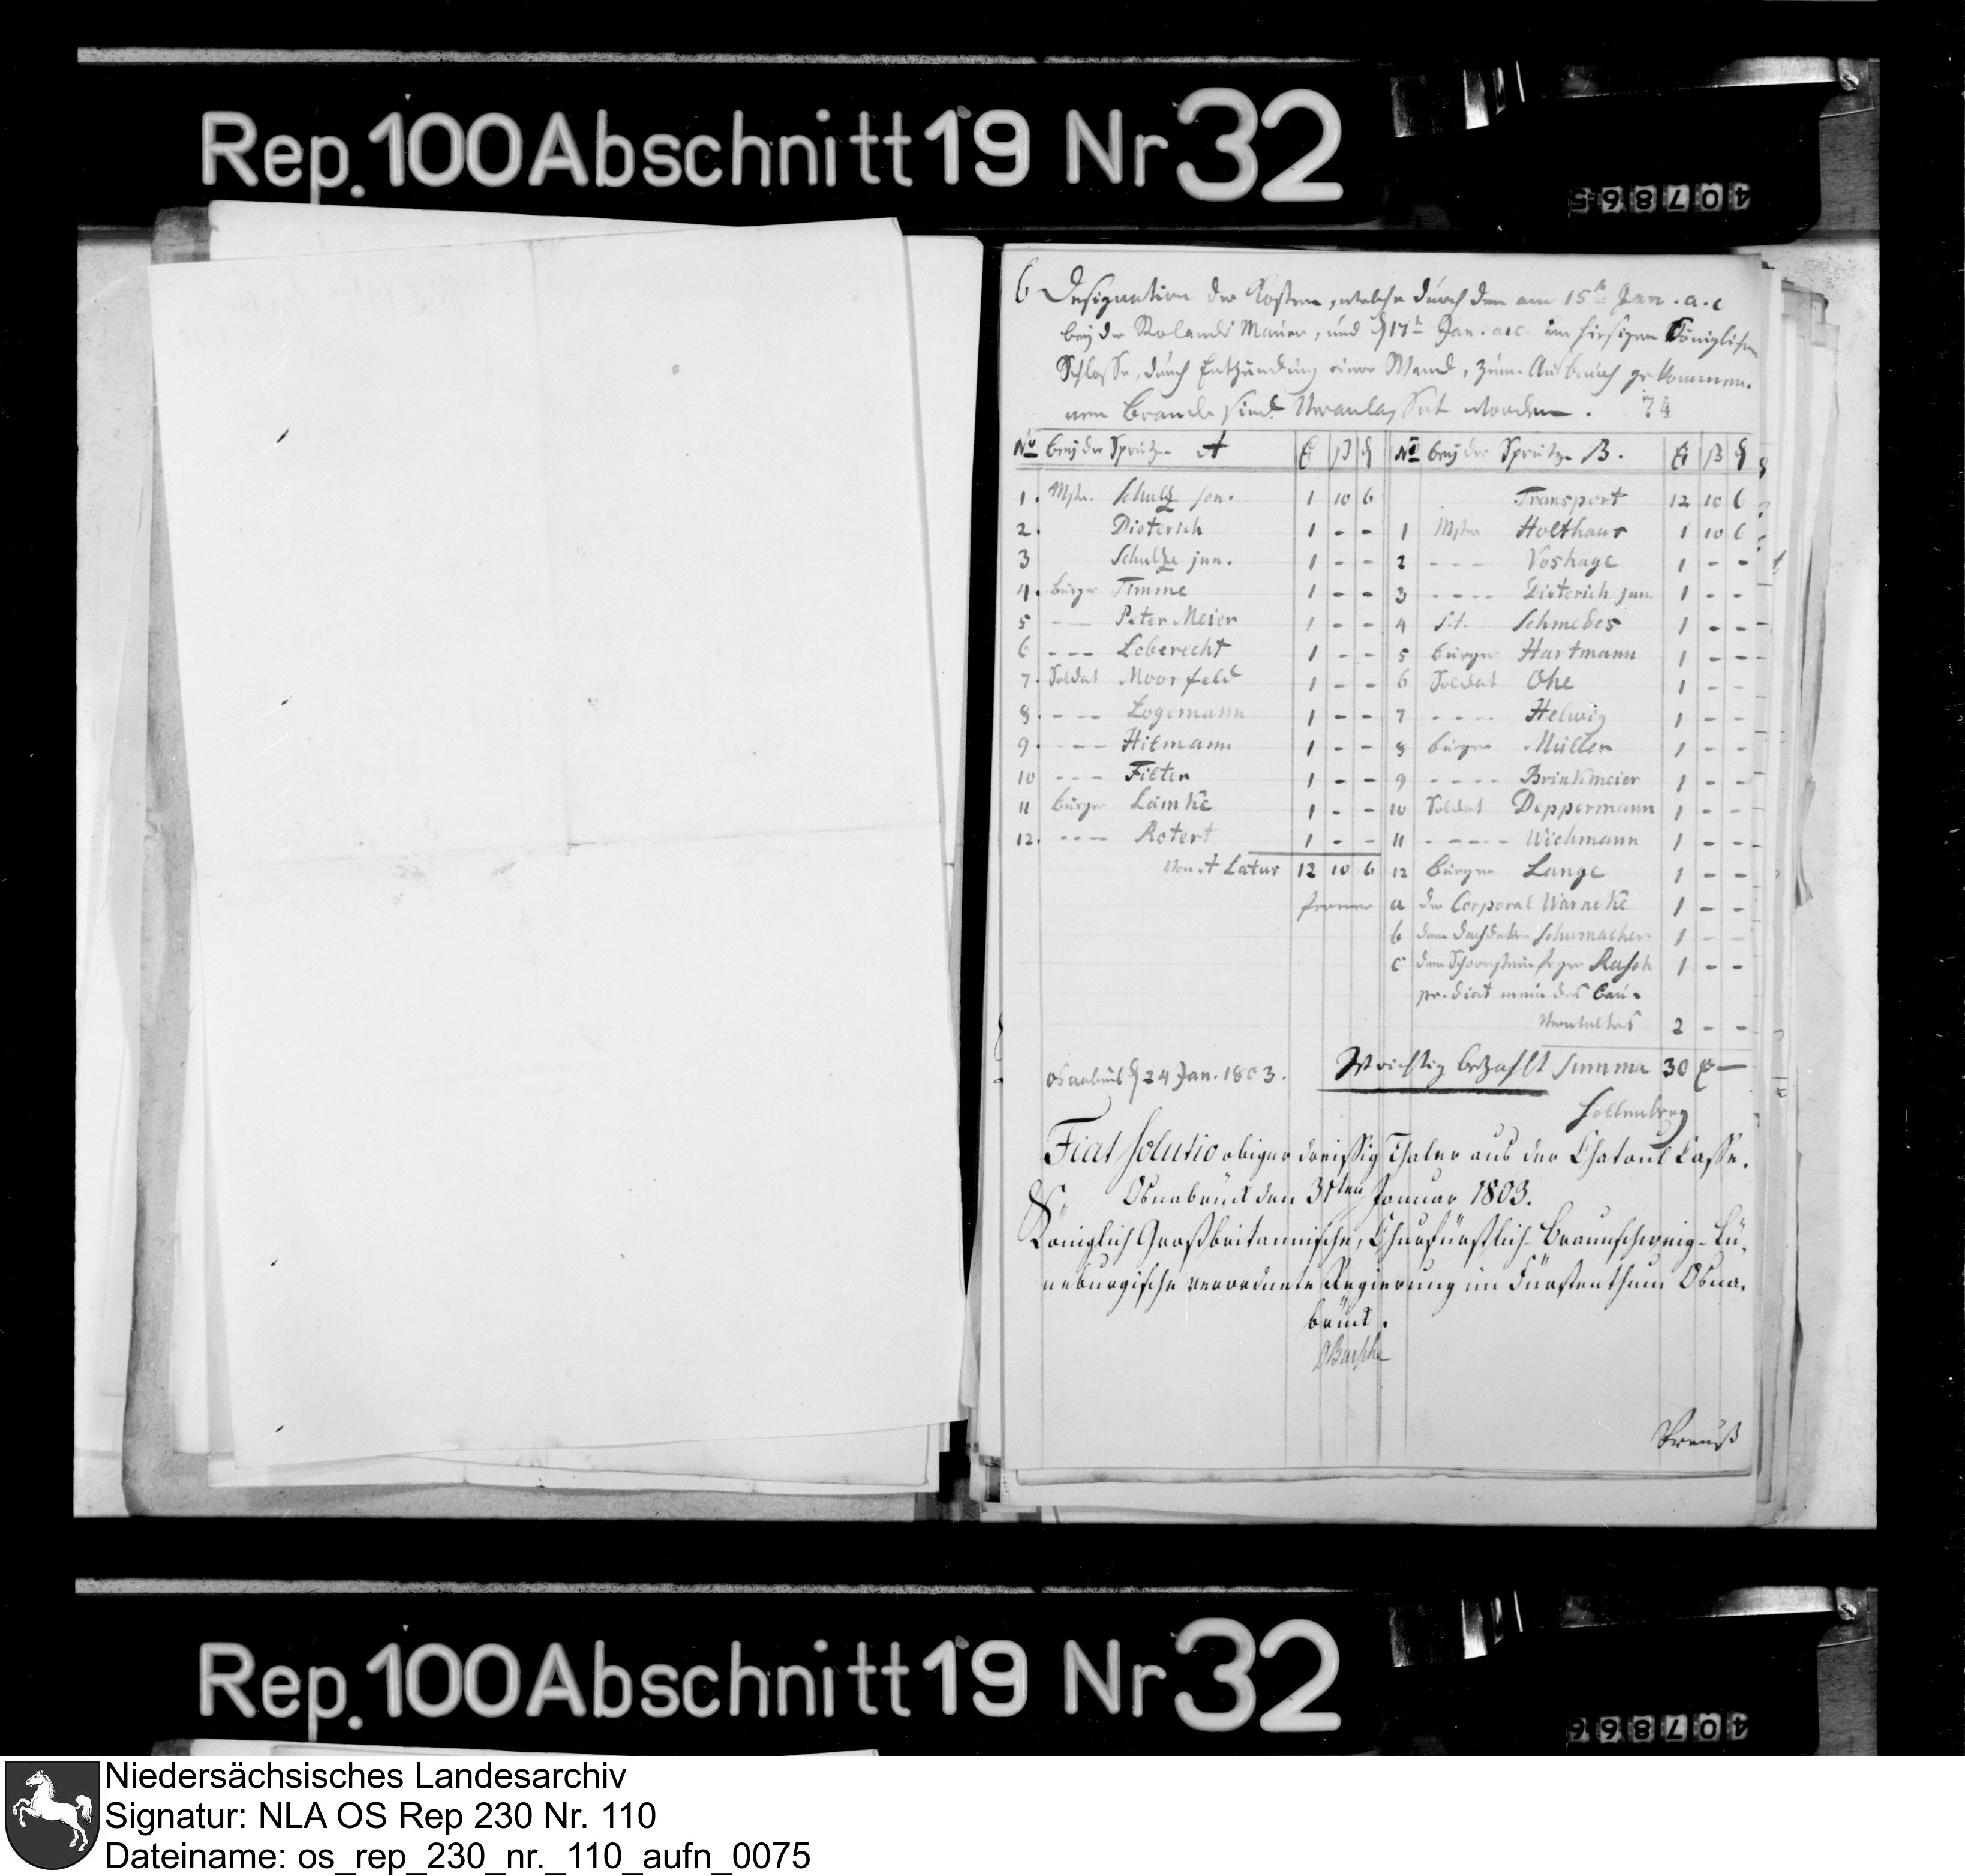 Rep. 100 Abschnitt 19 Nr 32
407865
6 Designation der Kosten, welche durch den am 15t Jan. a. c
bey der Rolands Mauer, und d 17t Jan. a. c. im hiesigen Königlichen
Schlosse, durch Entzündung einer Wand, zum Ausbruch gekommen.
nen Brande sind veranlasset worden. 74
No bey der Sprütze A rt ß d No bey der Sprütze B. rt ß d
1. Mstr. Schulze sen. 1 10 6 Transport 12 10 6
2. Dieterich 1 - - 1 Mstr Holthaus 1 10 6
3 Schulze jun. 1 - - 2 --- Voshage 1 - -
4. Bürger Timme 1 - - 3 ---- Dieterich jun. 1 - -
5 --- Peter Meier 1 - - 4 S.t. Schmedes 1 - -
6 --- Leberecht 1 - - 5 Bürger Hartmann 1 - -
7. Soldat Moorfeld 1 - - 6 Soldat Ohe 1 - -
8. --- Logemann 1 - - 7 ---- Helwig 1 - -
9. --- Hitmann 1 - - 8 Bürger Müller 1 - -
10 --- Fielter 1 - - 9 ---- Brinkmeier 1 - -
11 Bürger Lämke 1 - - 10 Soldat Deppermann 1 - -
12. --- Rotert 1 - - 11 ----- Wichmann 1 - -
von A Latus 12 10 6 12 Bürger Lange 1 - -
ferner a der Corporal Warneke 1 - -
b dem Dachdecker Schumacher 1 - -
c dem Schornsteinfeger Rasch 1 - -
pr. diat des Bau-
Verwalters 2 - -
Osnabrück d 24 Jan. 1803. Ist richtig bezahlt Summa 30 rt —
Hollenberg
Fiat Solutio obiger dreißig Thaler aus der Chatoul Casse.
Osnabrück den 31ten Januar 1803.
Königlich Großbritannische, Churfürstlich-Braunschweig-Lü-
neburgische verordnete Regierung im Fürstenthum Osna-
brück.
Preuß
Rep. 100 Abschnitt 19 Nr 32
407866
Niedersächsisches Landesarchiv
Signatur: NLA OS Rep 230 Nr. 110
Dateiname: os_rep_230_nr._110_aufn_0075